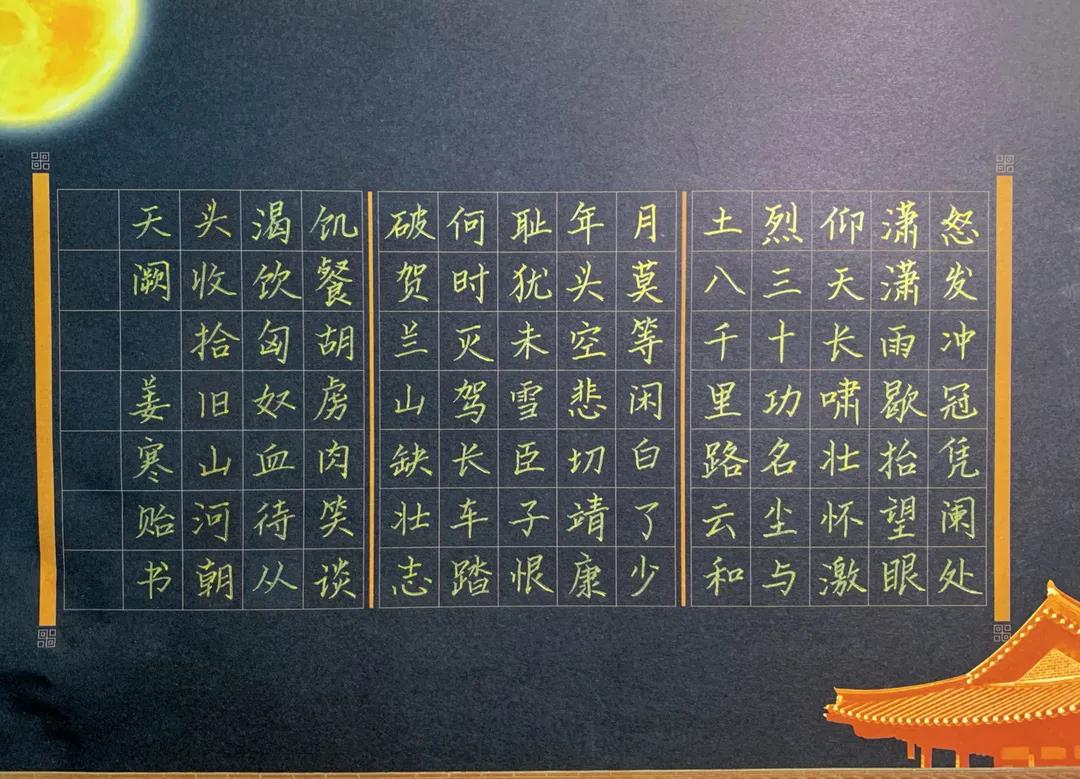 怒发冲冠凭阑处
潇潇雨歇抬望眼
仰天长啸壮怀激
烈三十功名尘与
土八千里路云和
月莫等闲白了少
年头空悲切靖康
耻犹未雪臣子恨
何时灭驾长车踏
破贺兰山缺壮志
饥餐胡虏肉笑谈
渴饮匈奴血待从
头收拾旧山河朝
天阙 姜寒贻书